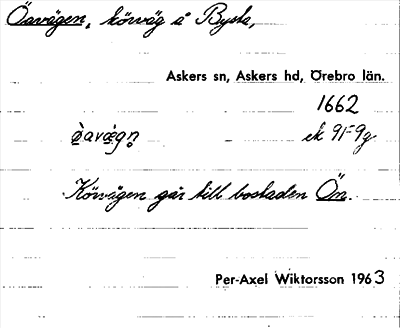 Öavägen, körväg å Bysta,
Askers sn, Askers hd, Örebro län.
1662
òavæ̀gn̥ ek 9F9g
Körvägen går till bostaden Ön.
Per-Axel Wiktorsson 1963